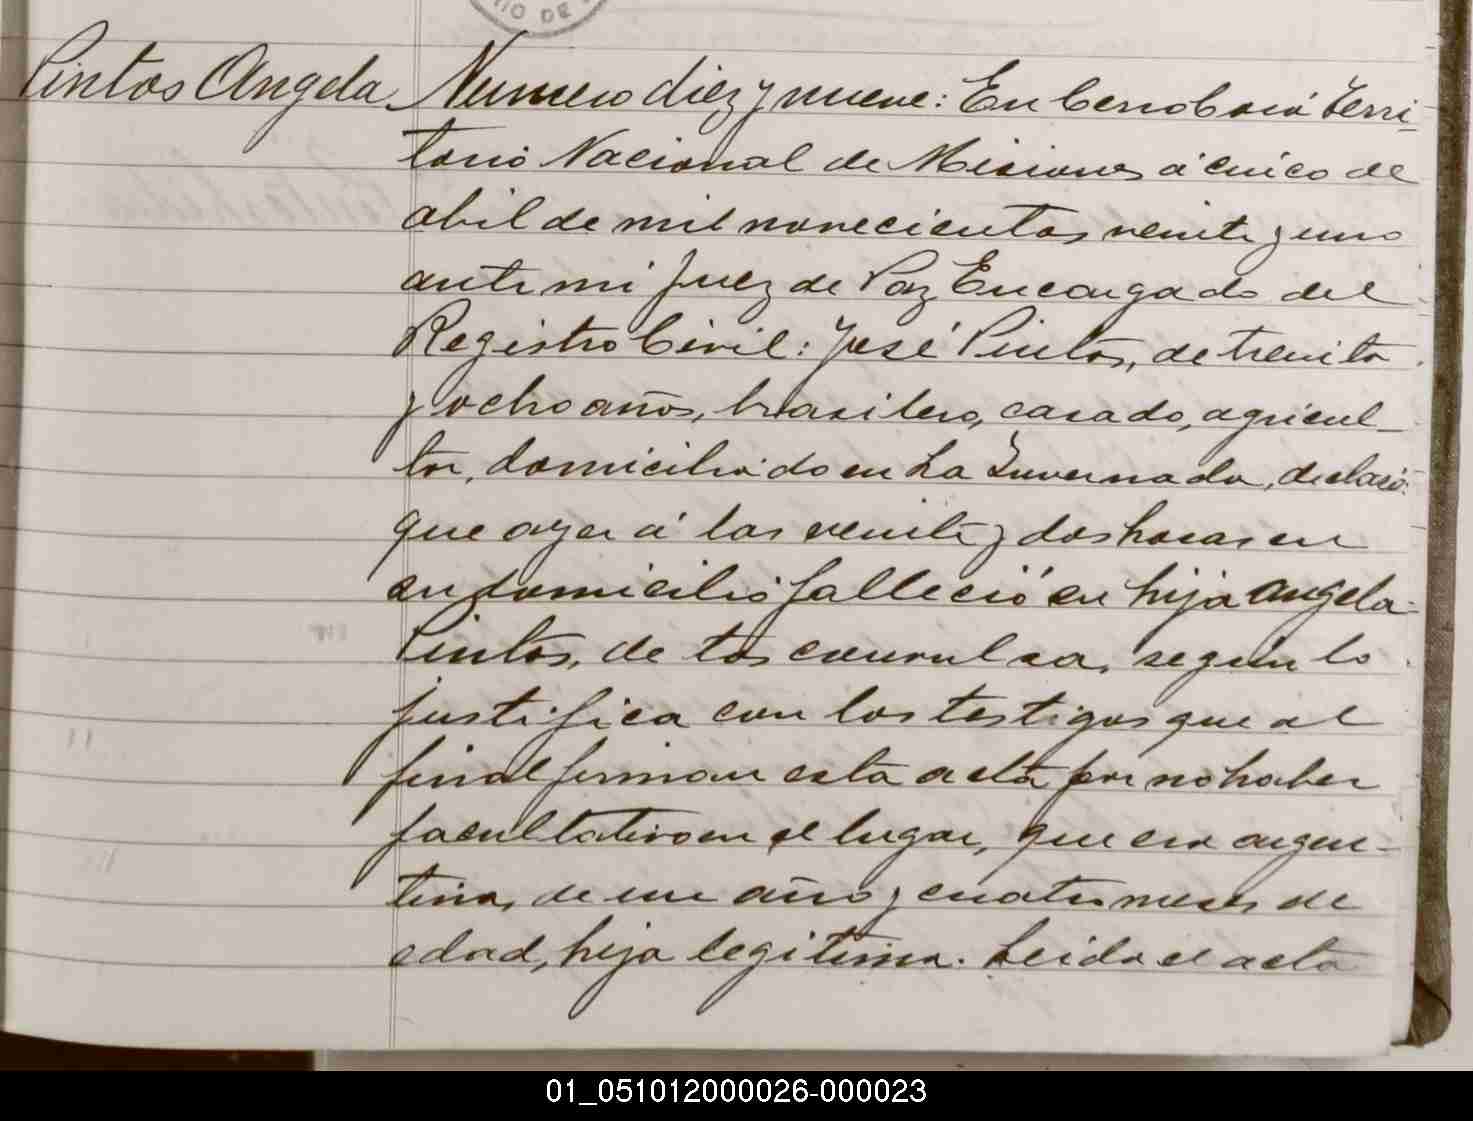 IO DE
Pintos Angela
Numero diez y nueve: En Cerro Corá Terri-
torio Nacional de Misiones á cinco de
abil de mil novecientos veinte y uno
ante mi Juez de Paz, Encargado del
Registro Civil: José Pintos, de treinta
y ocho años, brasilero, casado, agricul-
tor, domiciliado en La Invernada, declaró:
que ayer á las veinte y dos horas en
su domicilio falleció su hija Angela
Pintos, de tos convulsa, segun lo
justifica con los testigos que al
final firman esta acta por no haber
facultativo en el lugar, que era argen-
tina, de un año y cuatro meses de
edad, hija legitima. Leida el acta
01_051012000026-000023